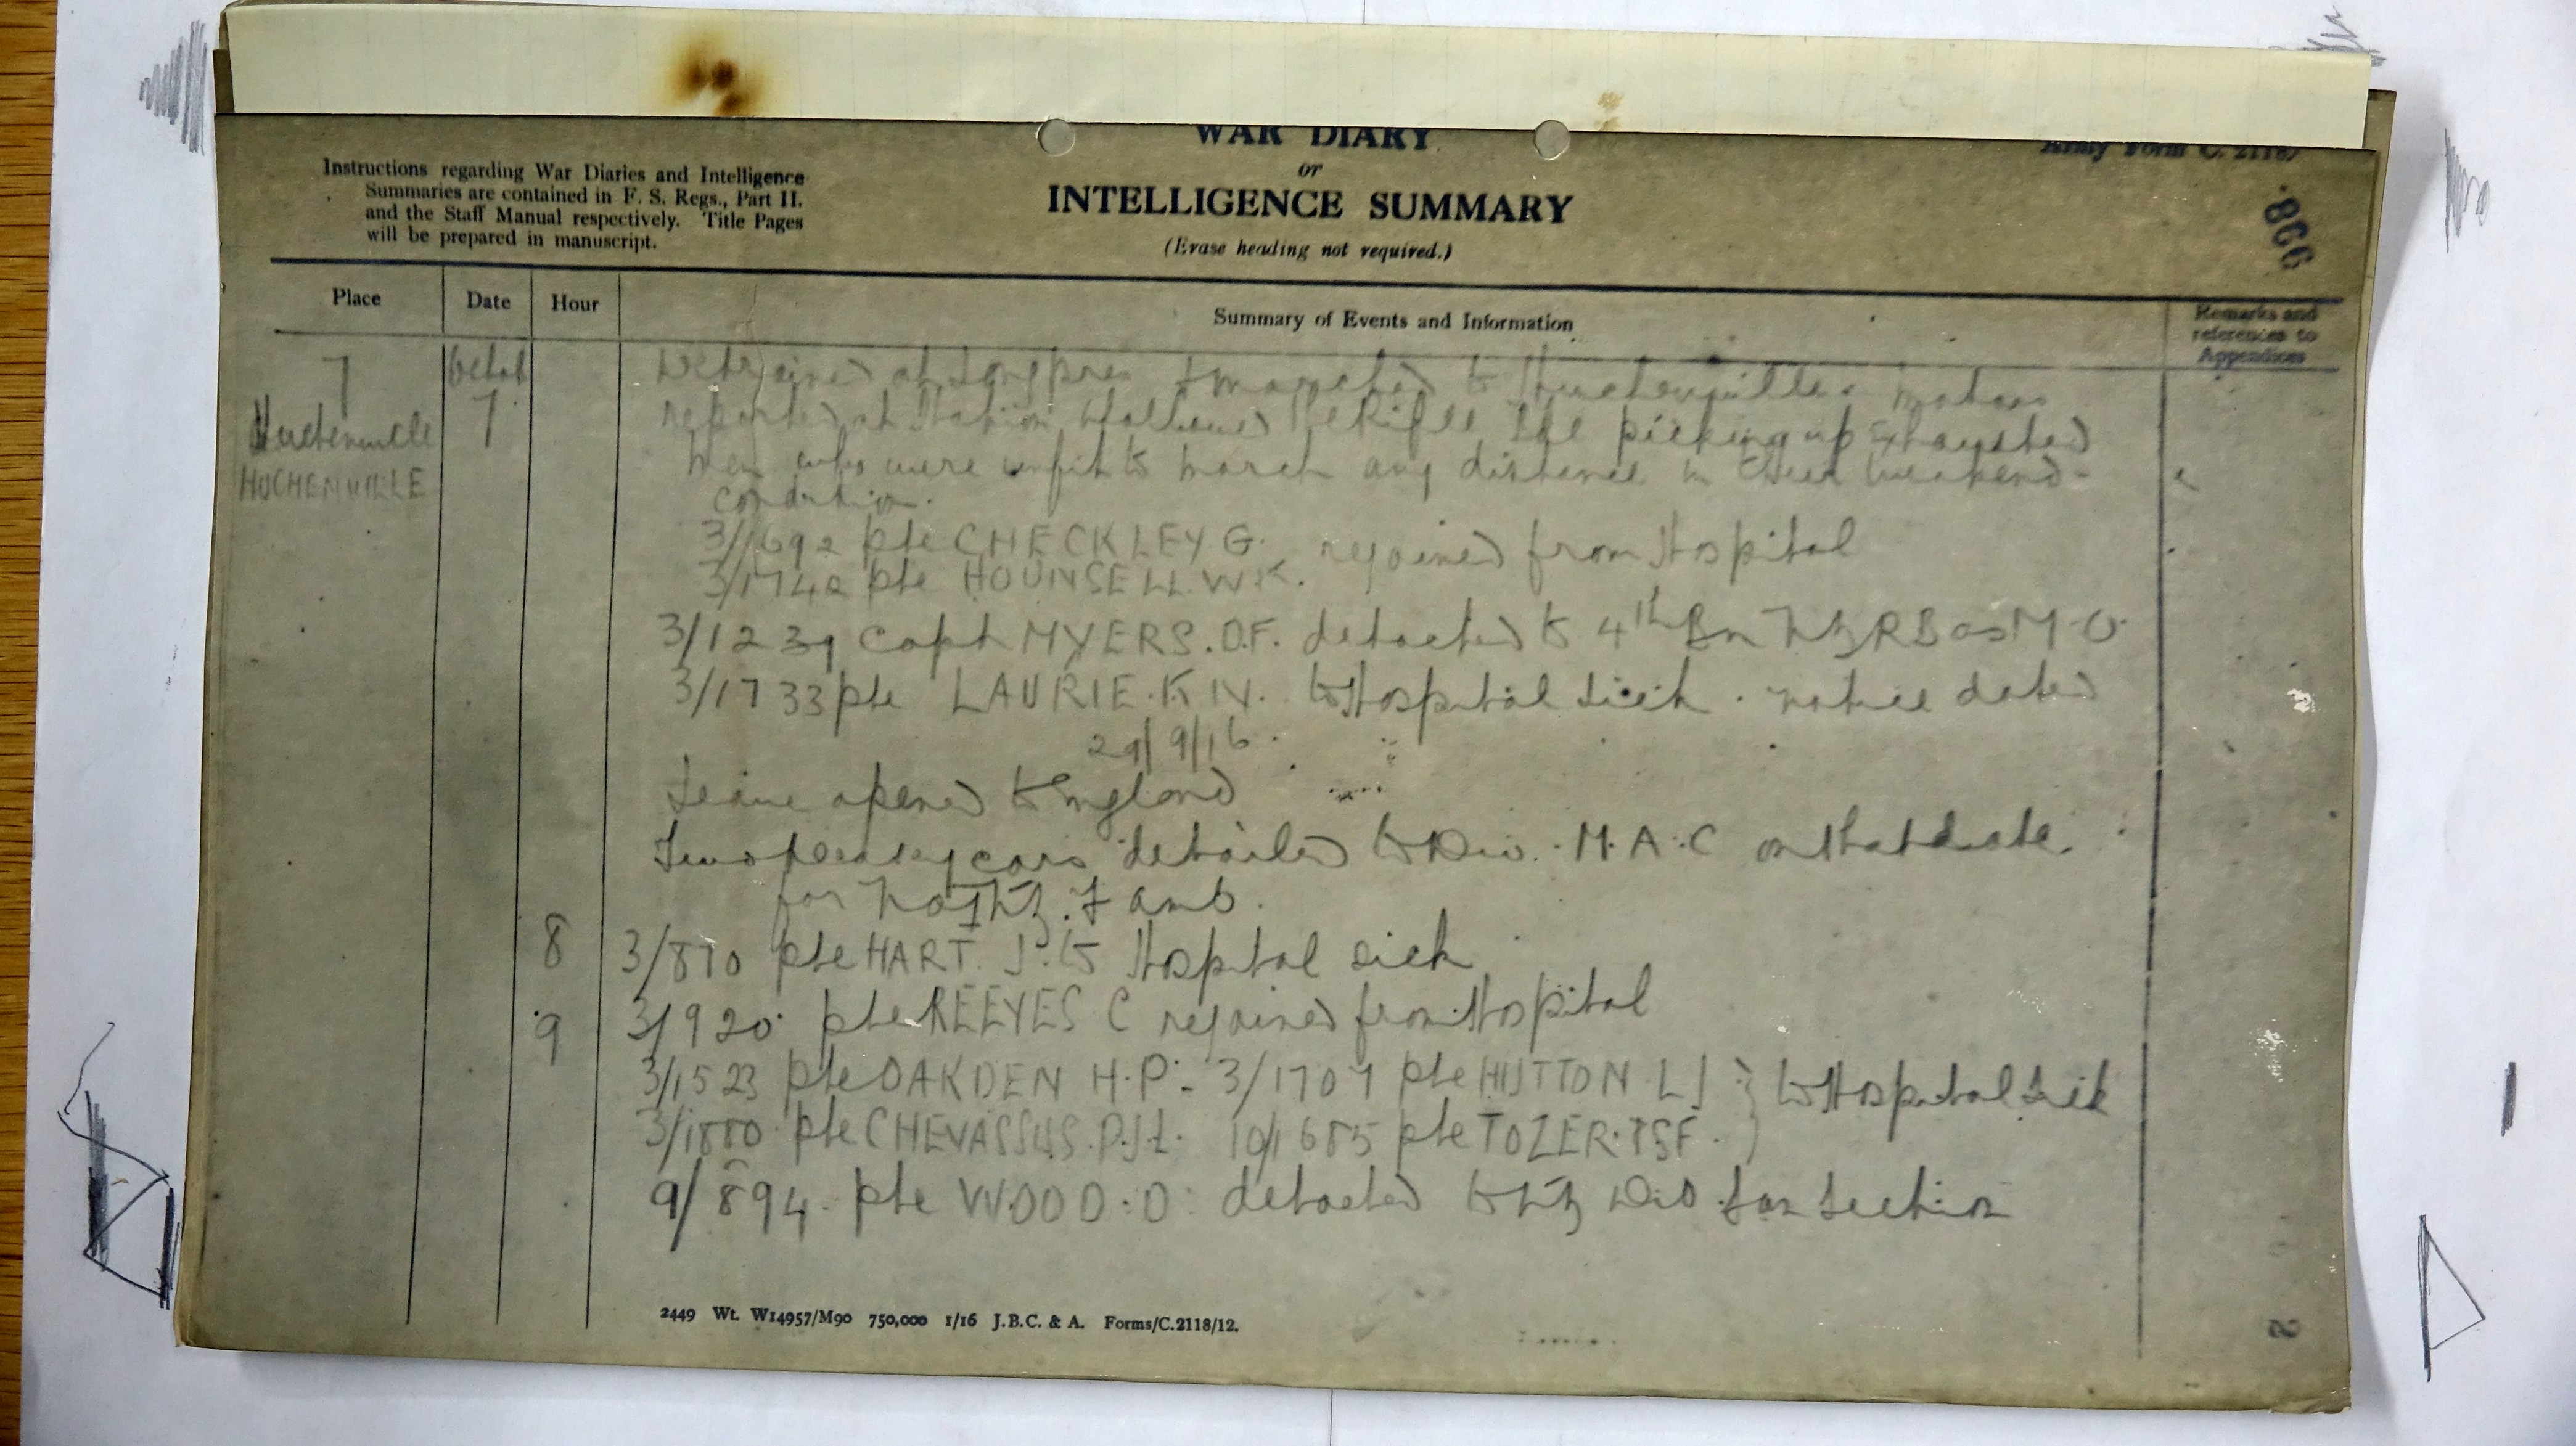 WAR DIARY
or
INTELLIGENCE SUMMARY
(Erase heading not required.)
Army Form C. 2118.
Instructions regarding War Diaries and Intelligence
Summaries are contained in F. S. Regs., Part II.
and the Staff Manual respectively. Title Pages
will be prepared in manuscript.
Place Date Hour Summary of Events and Information Remarks and
references to
Appendices
7 Octob Detrained at Longpres & marched to Huchenville. Motors
Huchenville 7 reported at Station & followed the Rifle Bde picking up exhausted
men who were unfit to march any distance in their weakened
HUCHENVILLE
condition.
3/1692 pte CHECKLEY G. rejoined from Hospital
3/1742 pte HOUNSELL W.K.
3/1239 Capt MYERS. D.F. detached to 4th Bn NZRB as M.O.
3/1733 pte LAURIE. K N. to Hospital sick. notice dated
29/9/16.
Leave opened to England
Two cars detailed to Div. M.A.C on that date.
for No 1 NZ. F amb.
8 3/870 pte HART. J. to Hospital sick
9 3/920 pte REEVES C rejoined from Hospital
3/1523 pte OAKDEN H.P. - 3/1707 pte HUTTON L J } to Hospital sick
3/1880 pte CHEVASSUS. P.J.L. 10/1685 pte TOZER. T S F. }
9/894 pte WOOD. O. detached to NZ Div San Section
2449 Wt. W14957/M90 750,000 1/16 J.B.C. & A. Forms/C.2118/12.